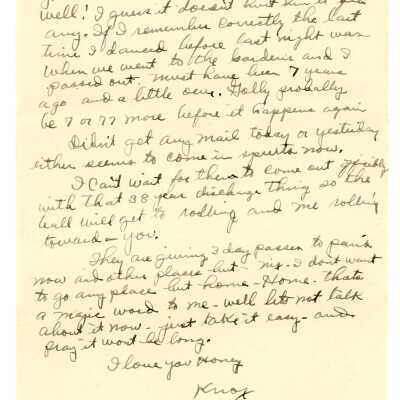 well! I guess it doesn't hurt him to
any. If I remember correctly the last
time I danced before last night was
when we went to the Gardens and I
passed out. Must have been 7 years
ago and a little over. Golly probably
be 7 or 77 more before it happens again
Didn't get any mail today or yesterday
either seems to come in spurts now.
I can't wait for them to come out
with that 38 year discharge thing so the
ball will get to rolling and me rolling
toward - you.
They are giving 3 day passes to paris
now and other places but - nix - I don't want
to go any place but home - Home - thats
a magic word to me - well lets not talk
about it now - just take it easy - and
pray it wont be long.
I love you Honey
Knox